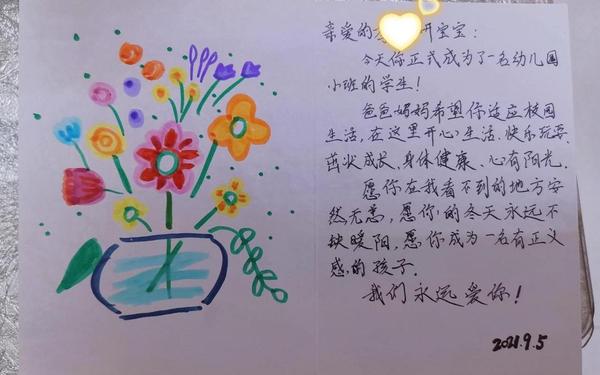 亲爱的 开宝宝：
今天你正式成为了一名幼儿园
小班的学生！
爸爸妈妈希望你适应校园
生活，在这里开心生活、快乐玩耍、
茁状成长、身体健康、心有阳光。
愿你在我看不到的地方安
然无恙，愿你的冬天永远不
缺暖阳，愿你成为一名有正义
感的孩子。
我们永远爱你！
2021.9.5